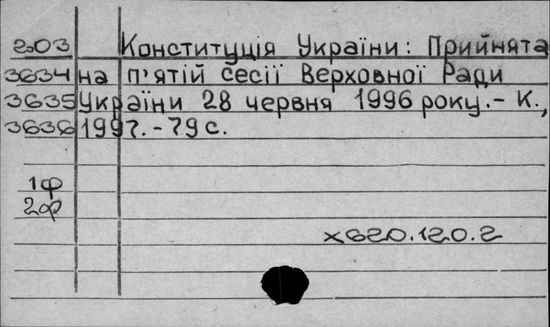 203 Конституція України: Прийнята
3634 на п'ятій сесії Верховної Ради
3635 України 28 червня 1996 року.- К.,
3636 1997.-79 с.
1ф
2ф
х620.120.2